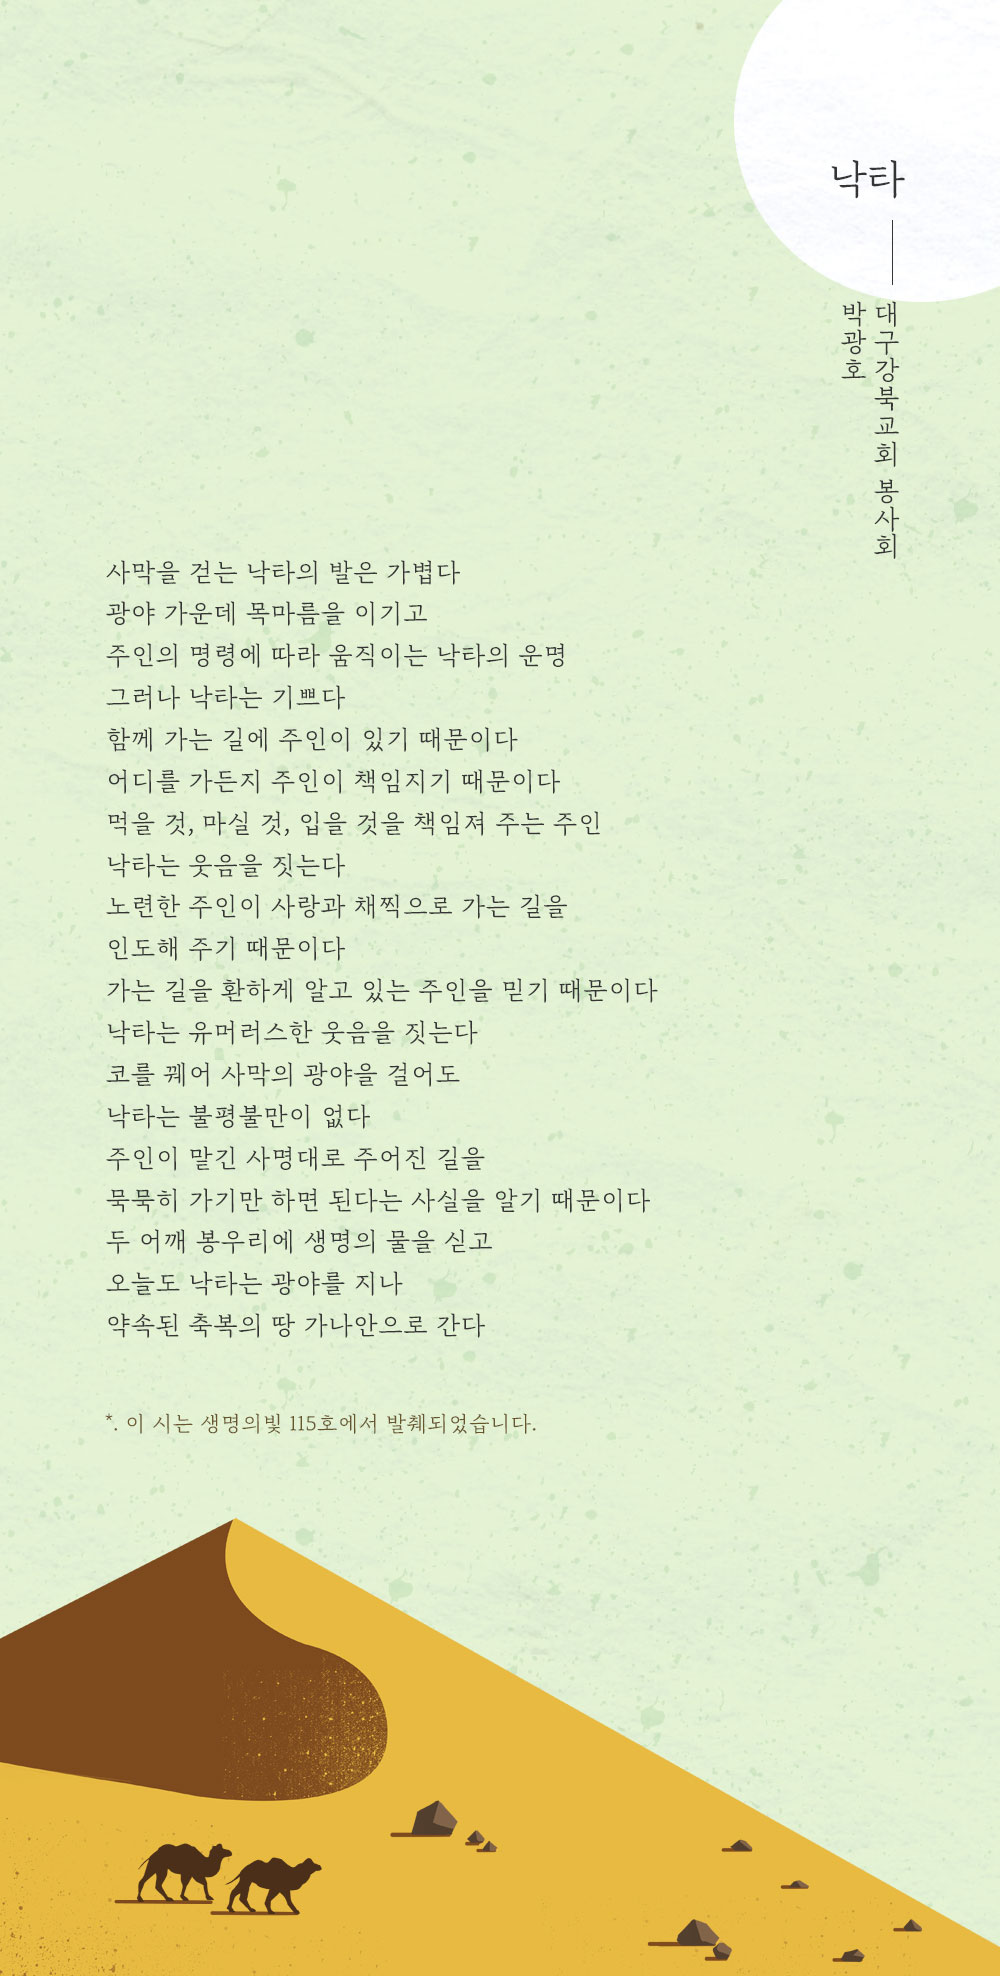 낙타
대구강북교회 봉사회
박광호
사막을 걷는 낙타의 발은 가볍다
광야 가운데 목마름을 이기고
주인의 명령에 따라 움직이는 낙타의 운명
그러나 낙타는 기쁘다
함께 가는 길에 주인이 있기 때문이다
어디를 가든지 주인이 책임지기 때문이다
먹을 것, 마실 것, 입을 것을 책임져 주는 주인
낙타는 웃음을 짓는다
노련한 주인이 사랑과 채찍으로 가는 길을
인도해 주기 때문이다
가는 길을 환하게 알고 있는 주인을 믿기 때문이다
낙타는 유머러스한 웃음을 짓는다
코를 꿰어 사막의 광야을 걸어도
낙타는 불평불만이 없다
주인이 맡긴 사명대로 주어진 길을
묵묵히 가기만 하면 된다는 사실을 알기 때문이다
두 어깨 봉우리에 생명의 물을 싣고
오늘도 낙타는 광야를 지나
약속된 축복의 땅 가나안으로 간다
*. 이 시는 생명의빛 115호에서 발췌되었습니다.